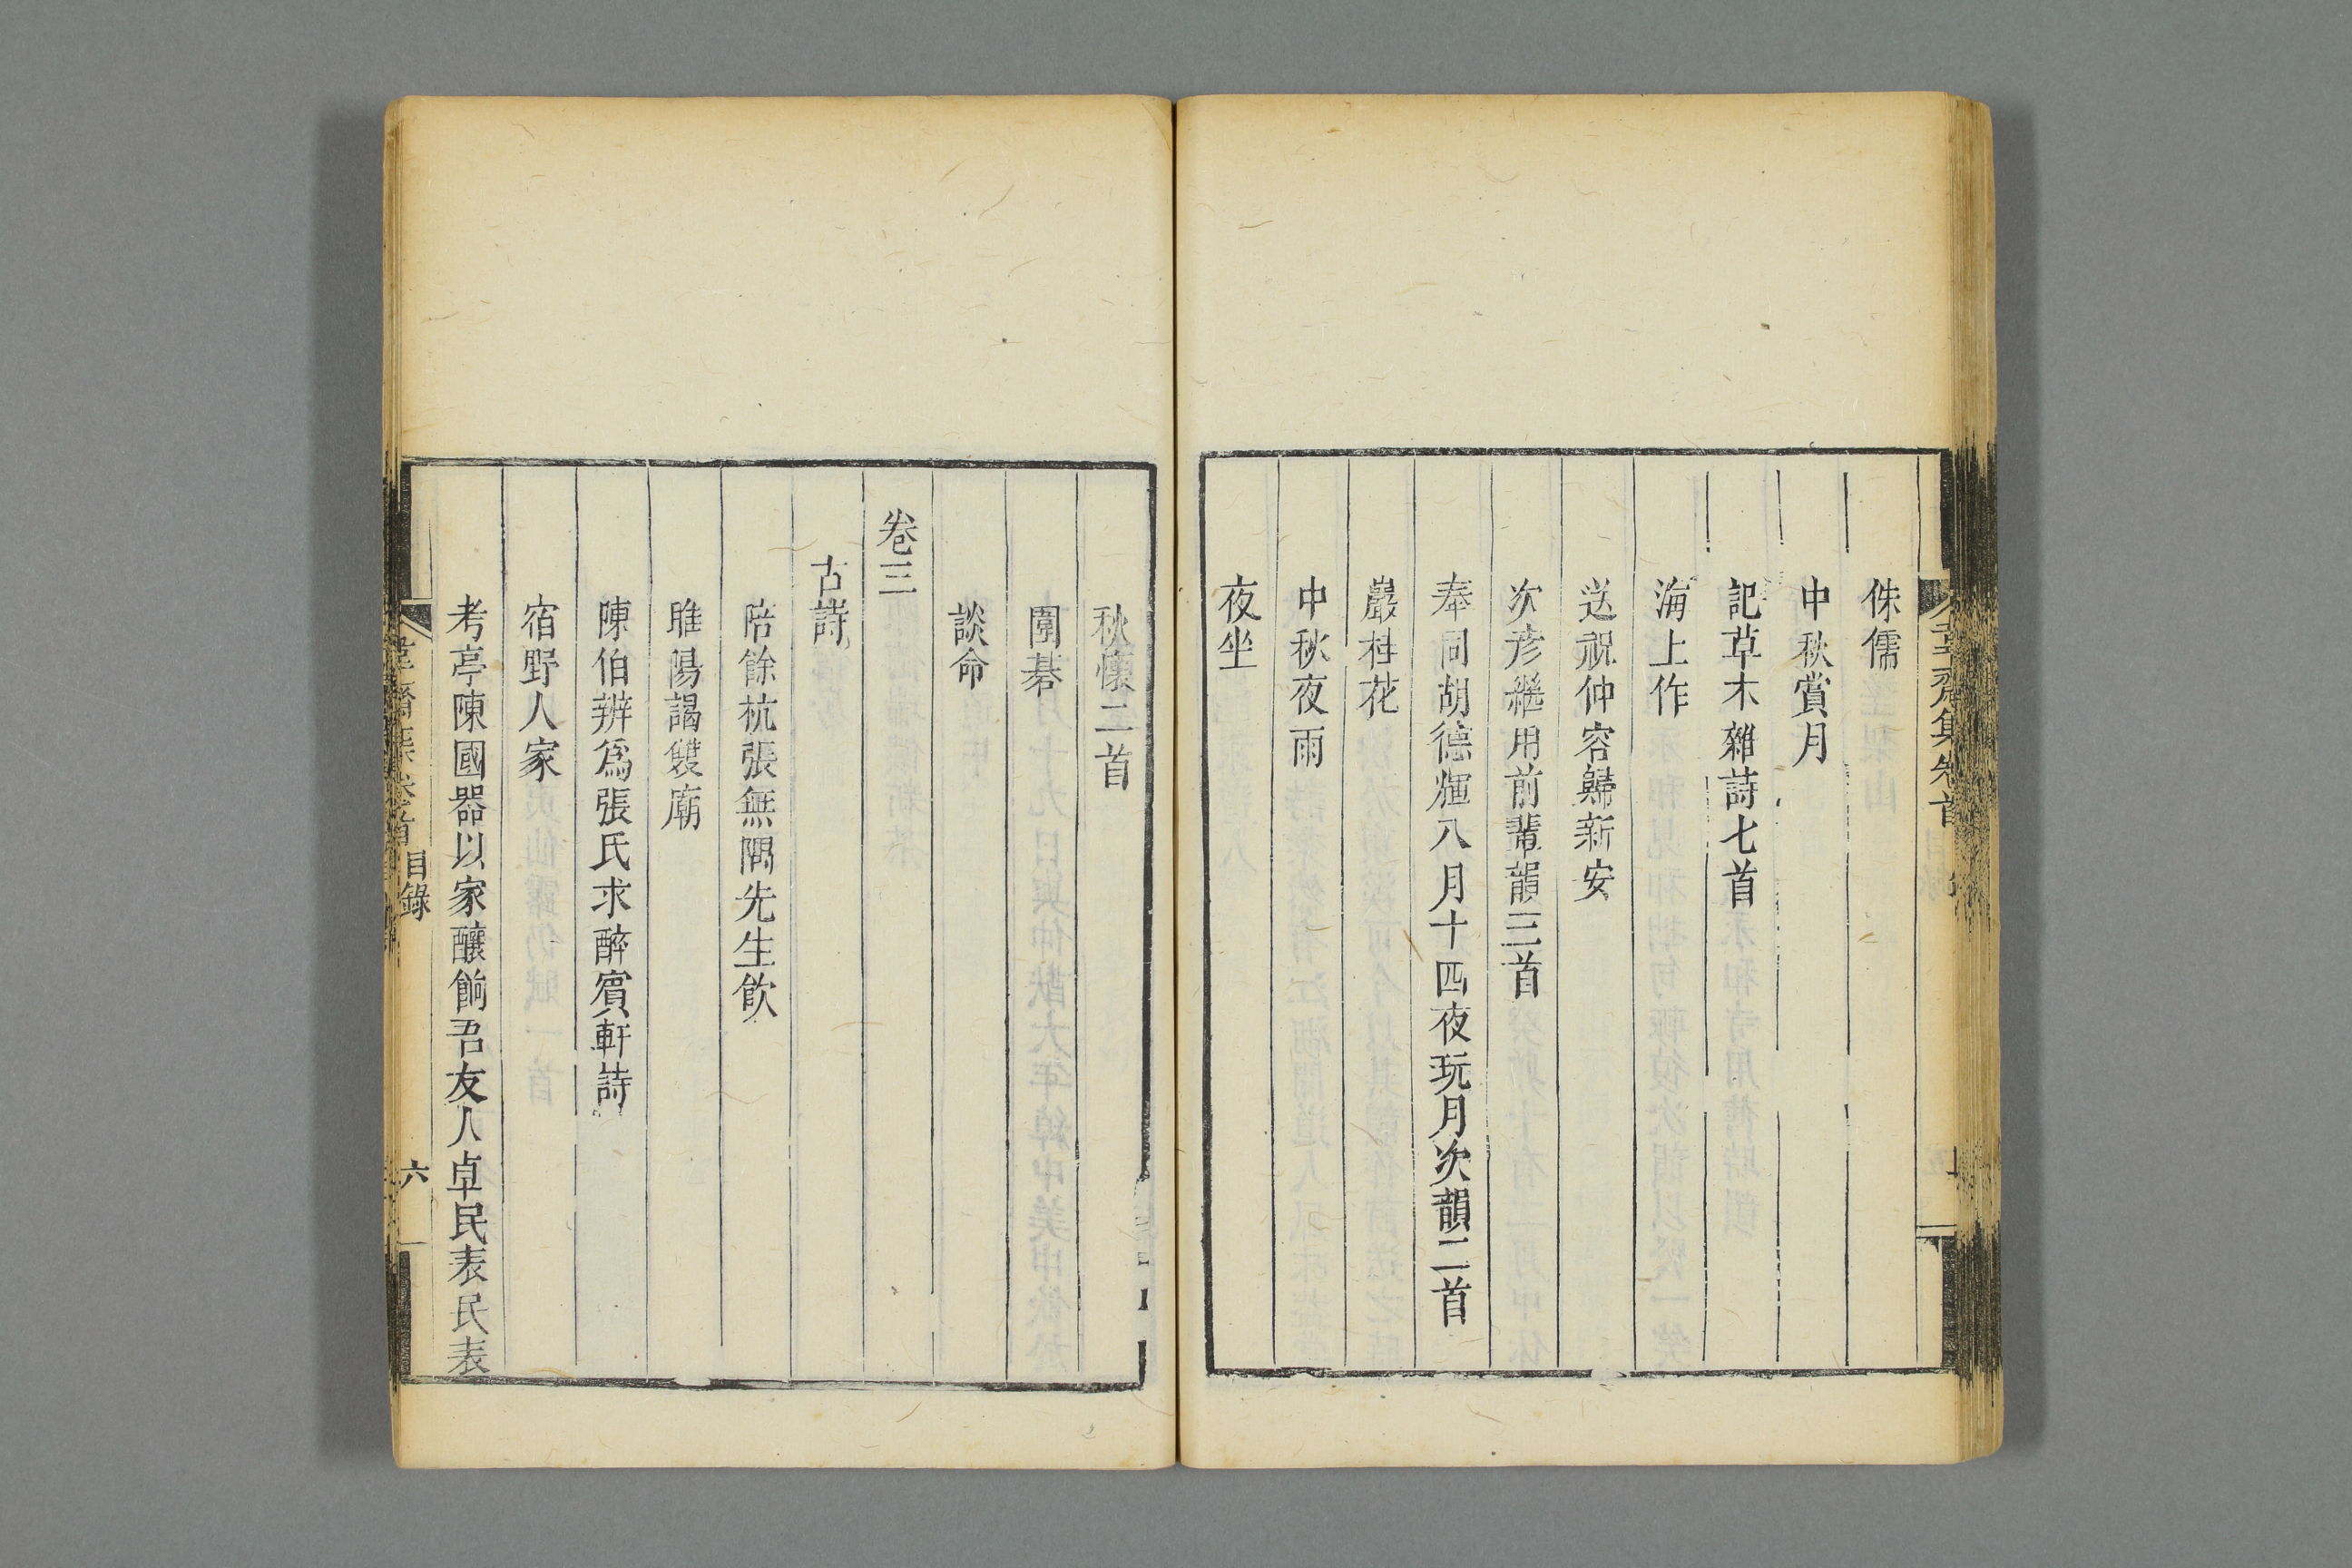 侏儒
中秋賞月
記草木雜詩七首
海上作
送祝仲容歸新安
次彥繼用前輩韻三首
奉同胡德輝八月十四夜玩月次韻二首
巖桂花
中秋夜雨
夜坐
秋懷二首
圍碁
談命
卷三
古詩
陪餘杭張無隅先生飲
睢陽謁雙廟
陳伯辨爲張氏求醉賓軒詩
宿野人家
考亭陳國器以家釀餉吾友人卓民表民表
韋齋集卷首
目錄
六